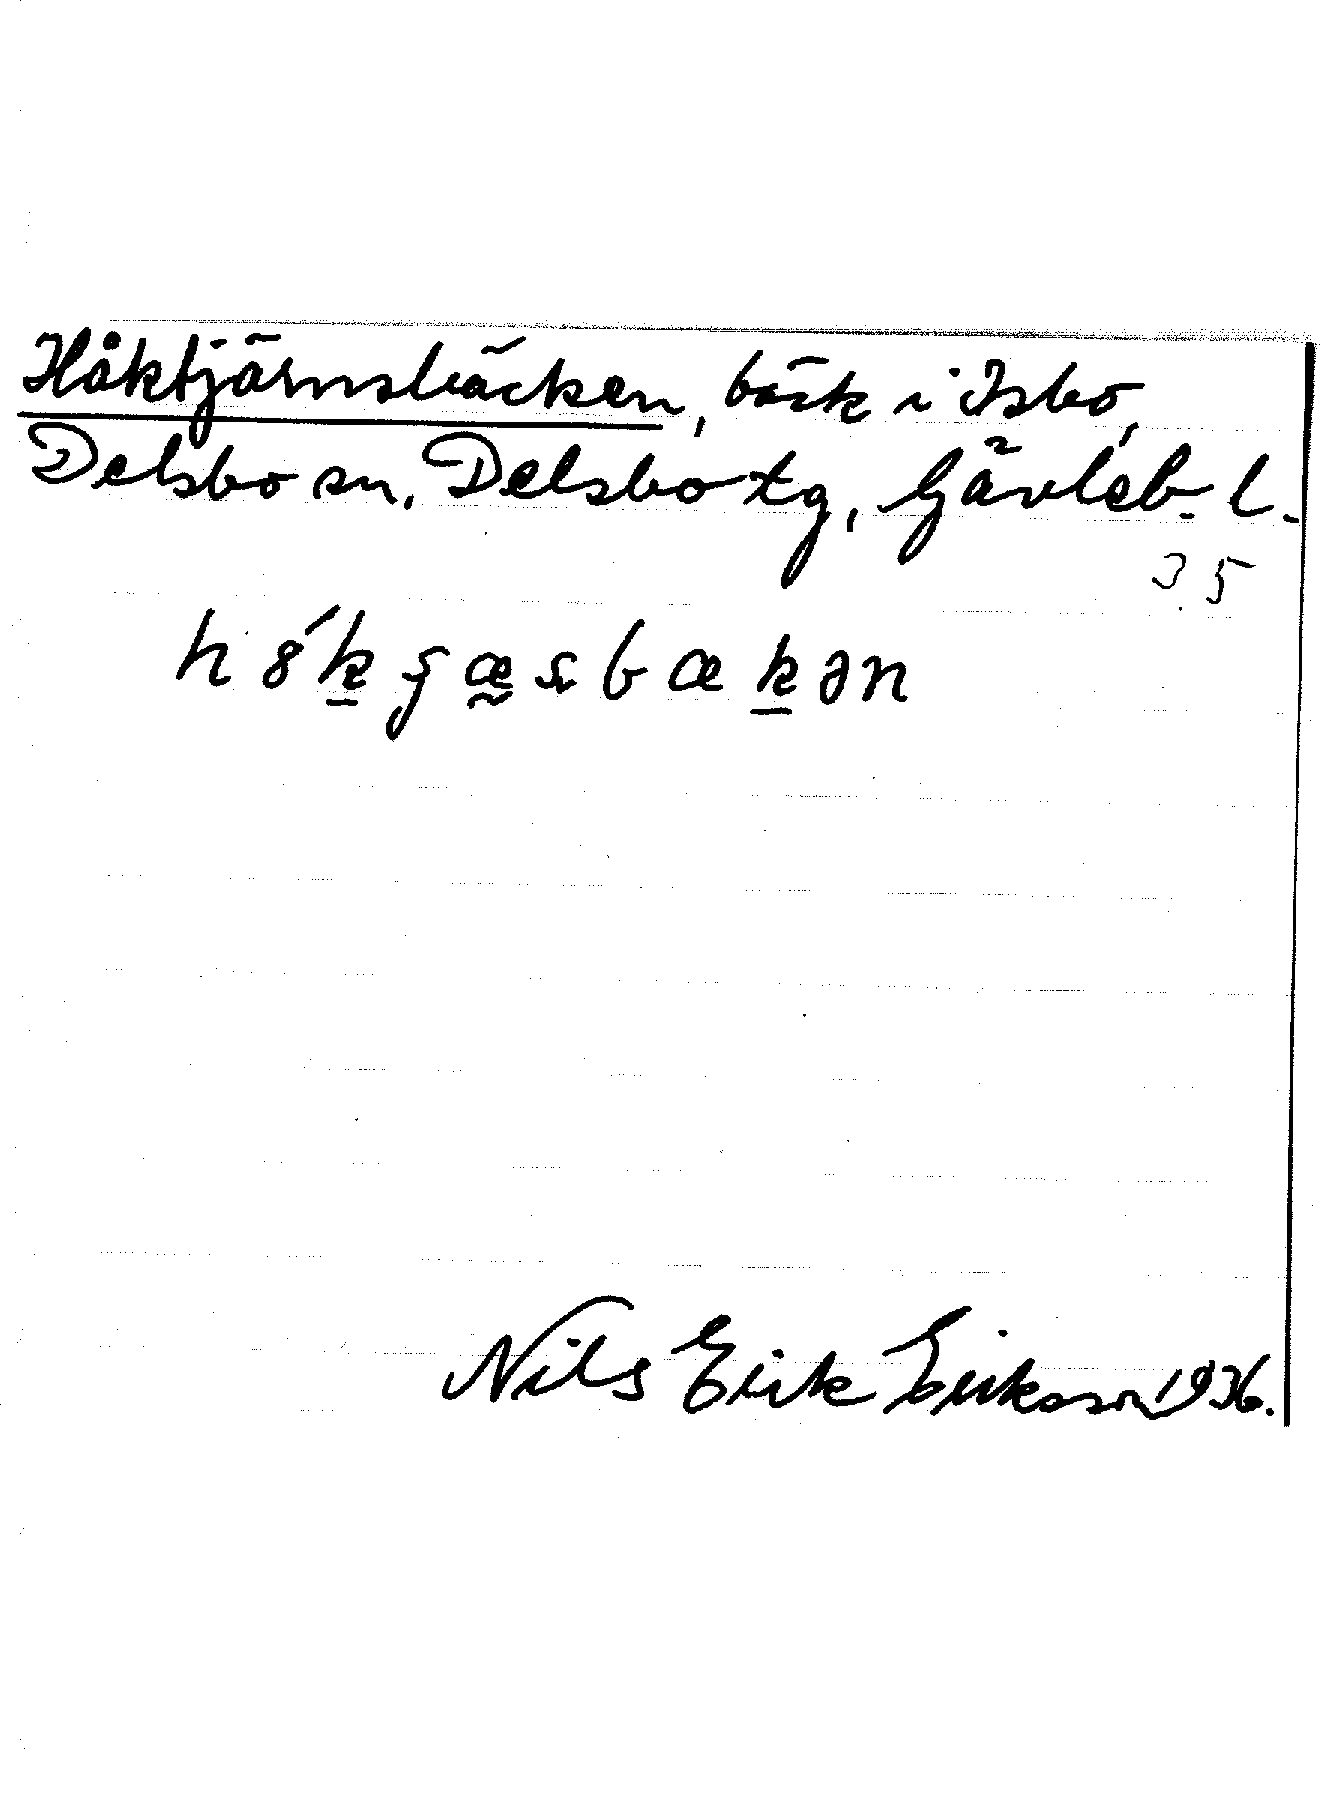 Håktjärnsbäcken, bäck i Isbo,
Delsbo sn. Delsbo tg, Gävleb. l.
35
Nils Erik Eriksson 1936.